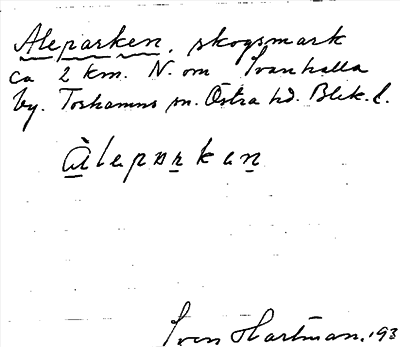 Aleparken, skogsmark
ca 2 km. N. om Ivanhalla
by. Torhamns sn. Östra hd. Blek. l.
àleparkan
Iven Hartman. 193